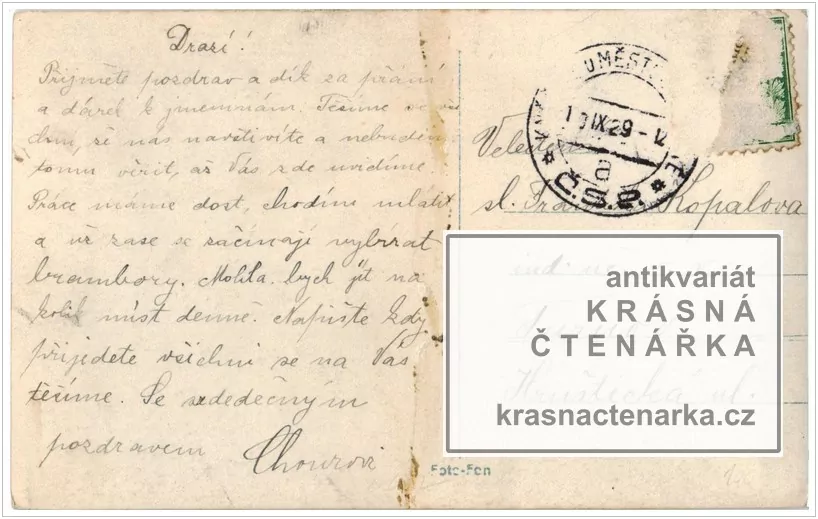 Drazí!
Přijměte pozdrav a dík za přání
a dárek k jmeninám. Těšíme se
že nás navštívíte a nebudeme
tomu věřit, až Vás zde uvidíme.
Práce máme dost, chodíme mlátit
a už zase se začínají vybírat
brambory. Mohla bych jít na
kolik míst denně. Napište kdy
přijedete všichni se na Vás
těšíme. Se srdečným
pozdravem
IX 29
Č.S.P.
sl. Kopalova
Hruštecká ul.
antikvariát
KRÁSNÁ
ČTENÁŘKA
krasnactenarka.cz
Foto-Fon